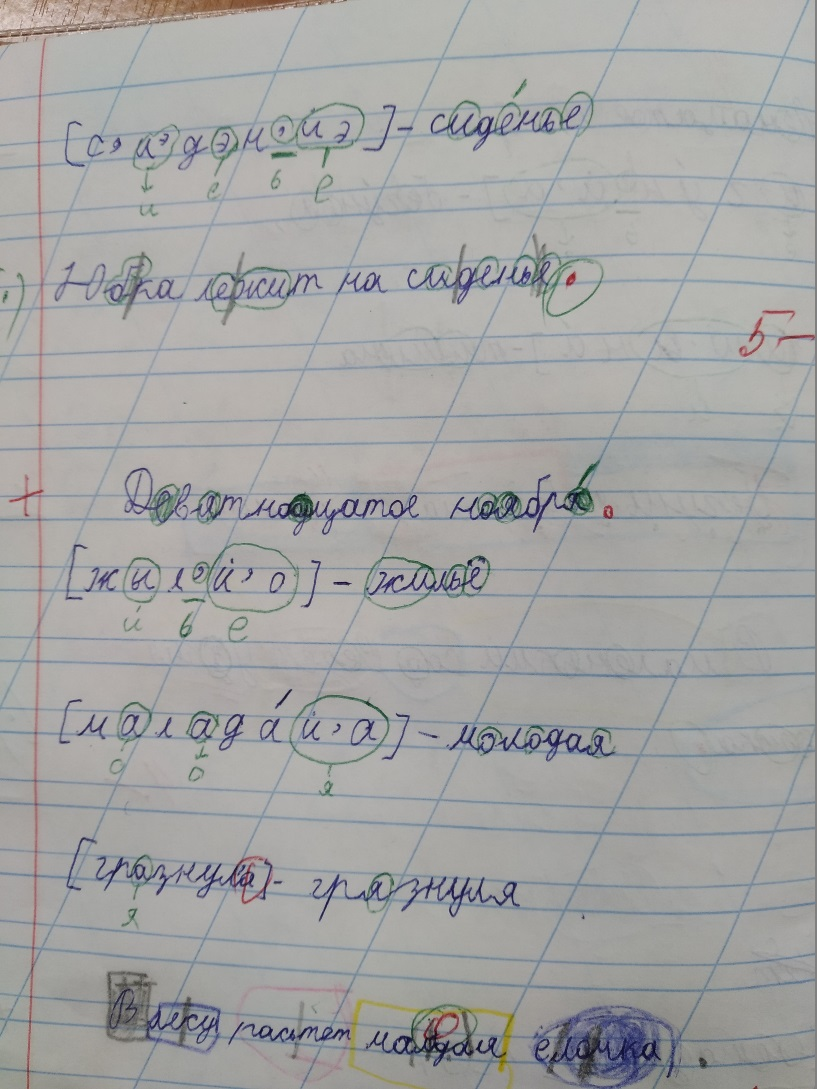 [с, и, д э н , й э ] – сиденье
и е ь е
Юбка лежит на сиденье.
5–
+ Девятнадцатое ноября.
[ж ы л , й , о ] – жильё
и ь е
[м а л а д а́ й , а ] – молодая
о о я
[гразнула] – грязнуля
я
В лесу растет молодая ёлочка.